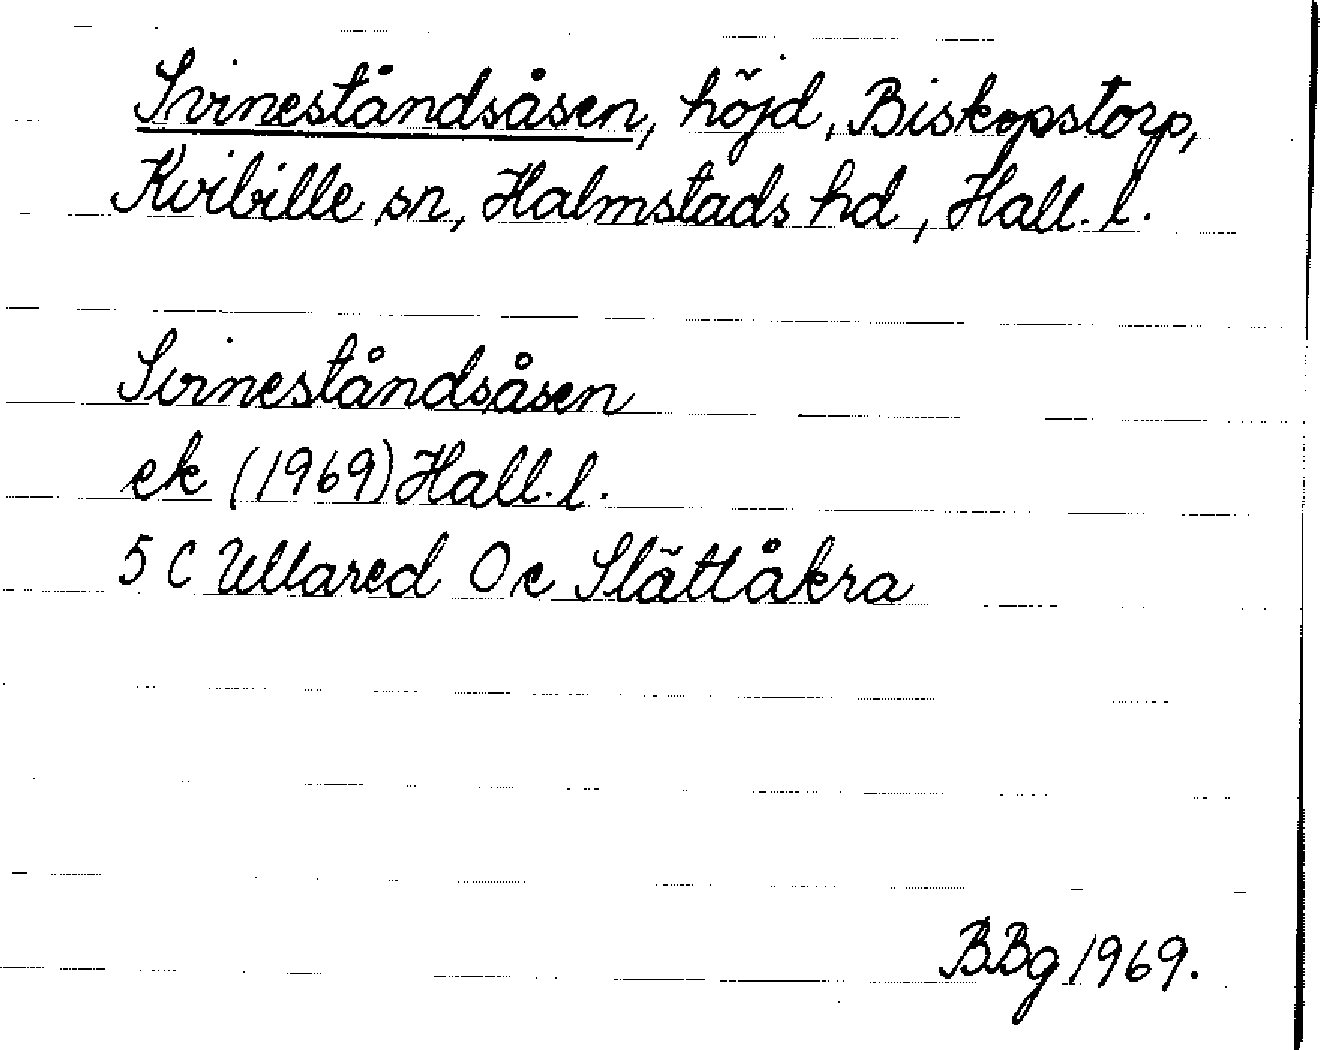 Svineståndsåsen, höjd, Biskopstorp,
Kvibille sn, Halmstads hd, Hall. l.
Svineståndsåsen
ek (1969) Hall. l.
5 C Ullared 0 e Slättåkra
BBg 1969.